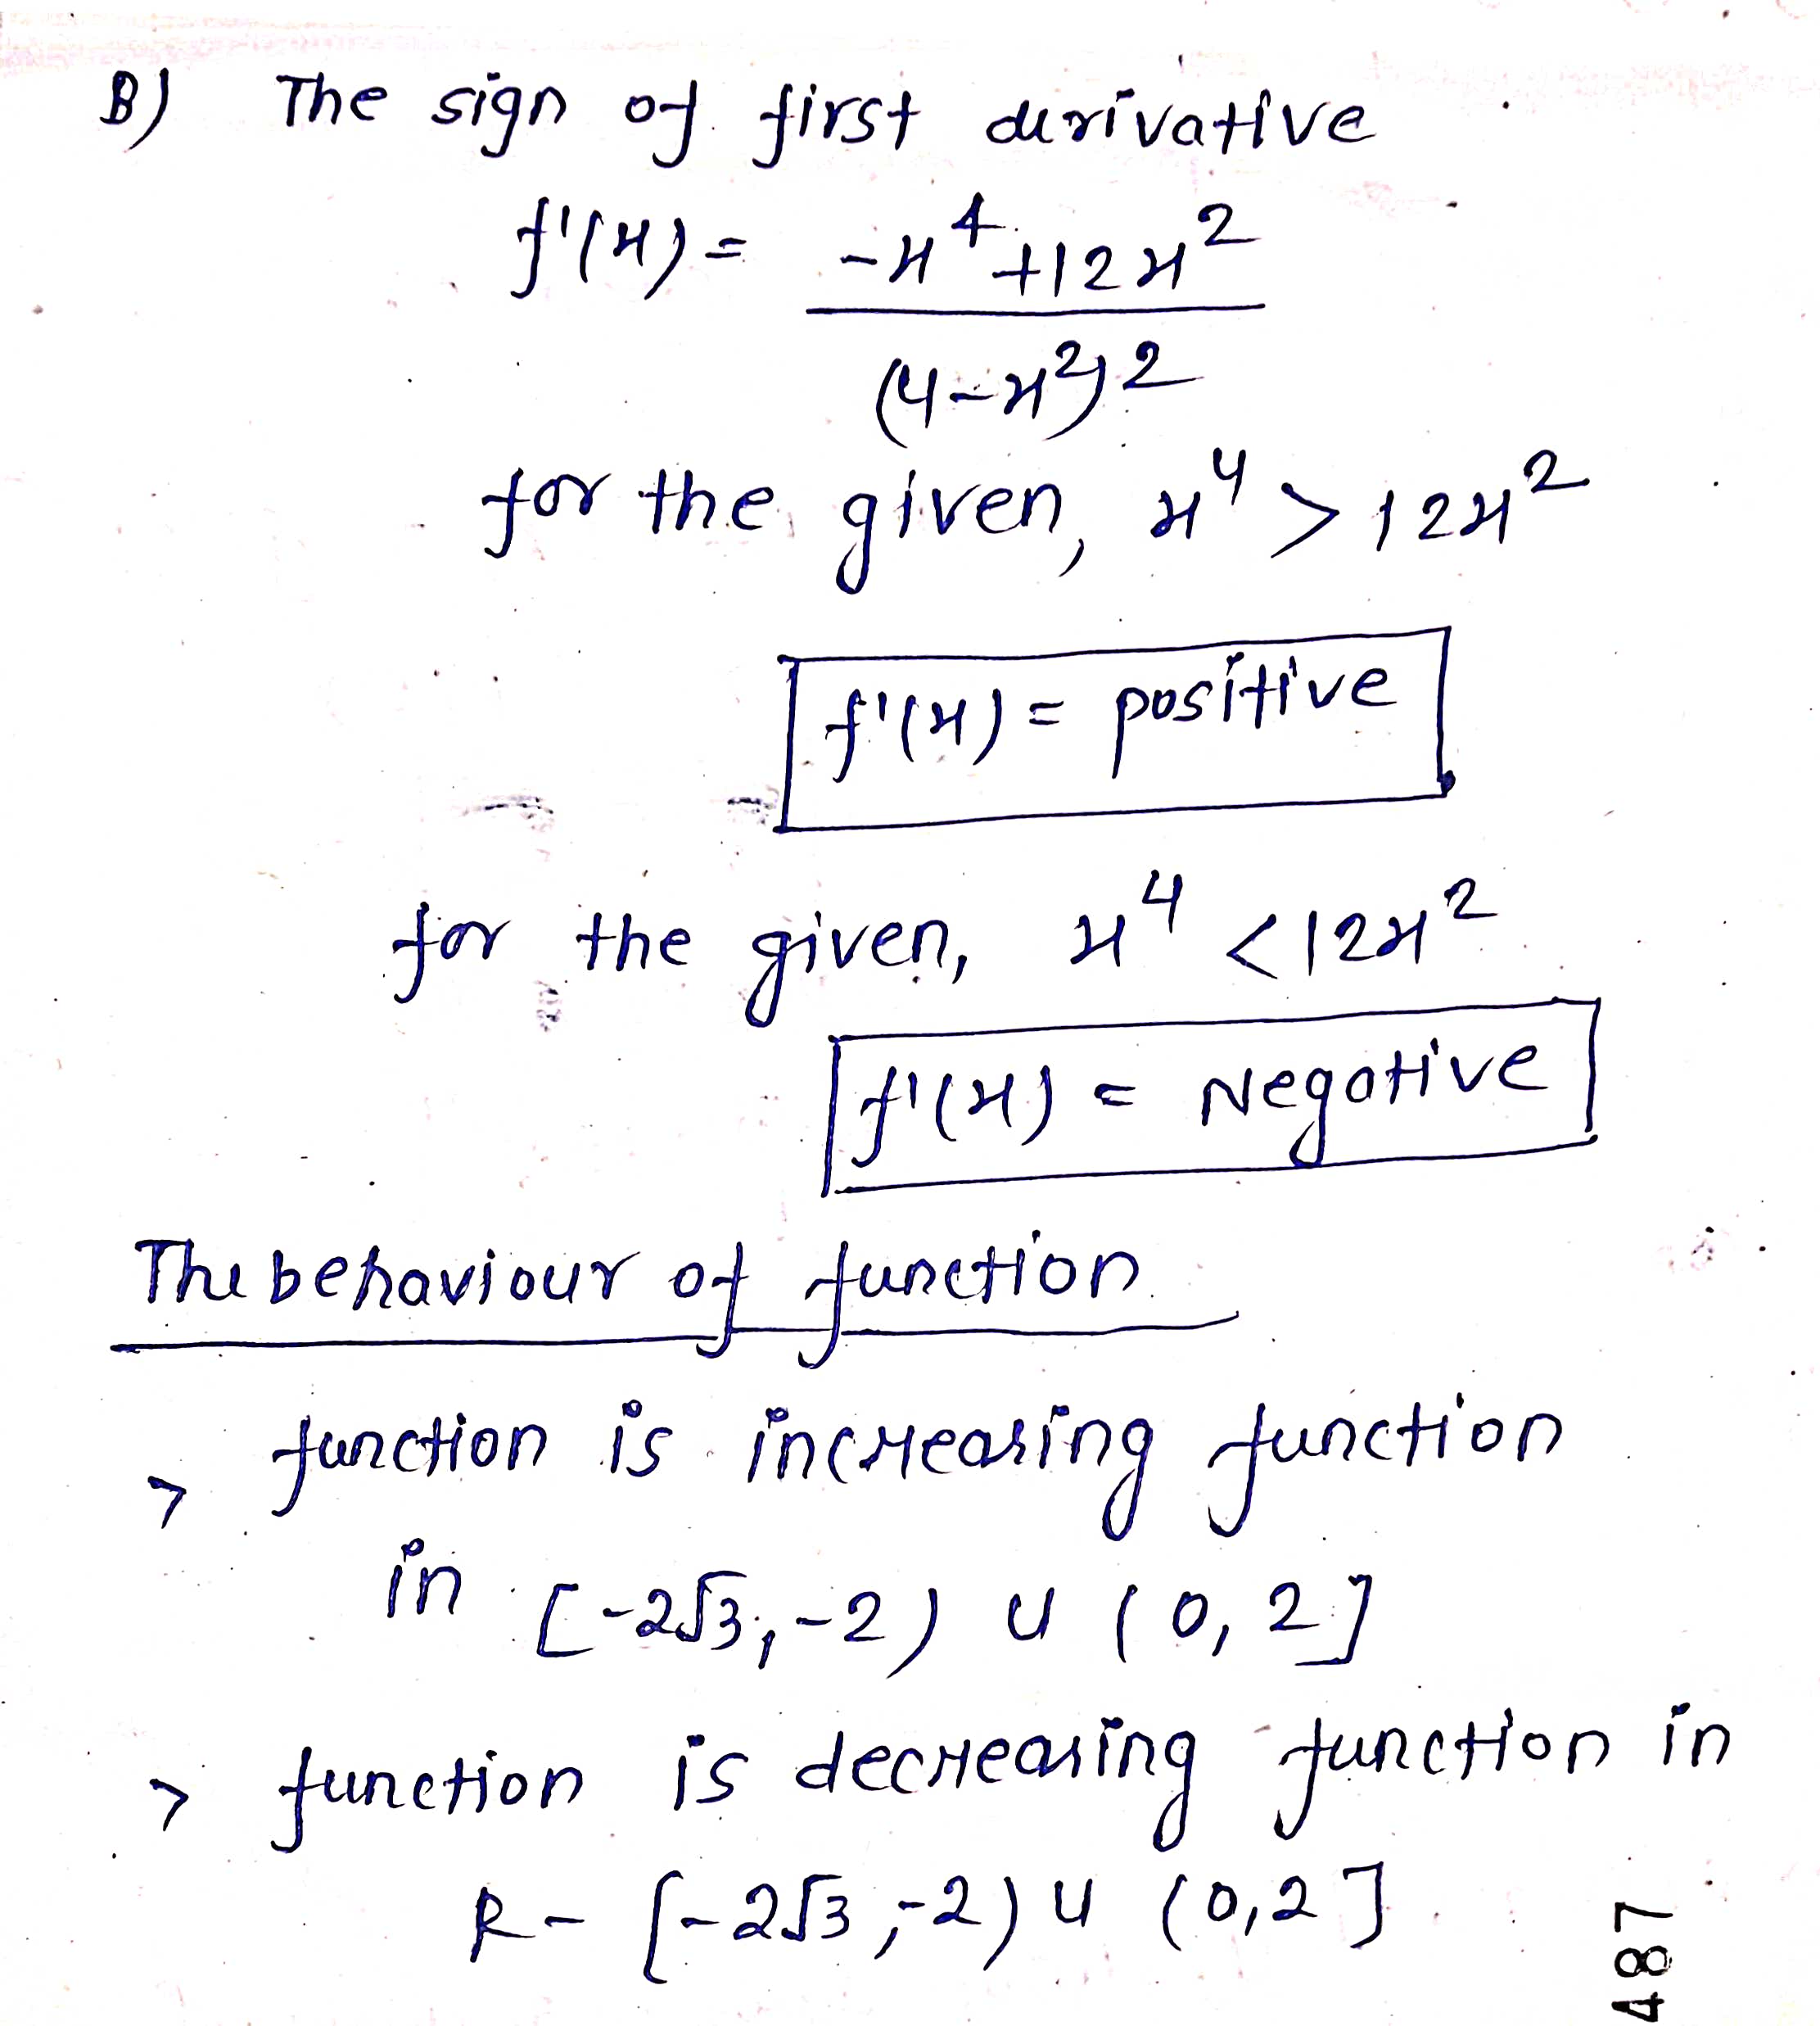 B) The sign of first derivative
f'(x) = -x⁴+12x²
(4-x²)2
for the given, x⁴ > 12x²
f'(x) = positive
for the given, x⁴ < 12x²
f'(x) = Negative
The behaviour of function
> function is increasing function
in [-2√3, -2) U (0, 2]
> function is decreasing function in
R - [-2√3, -2) U (0,2]
487